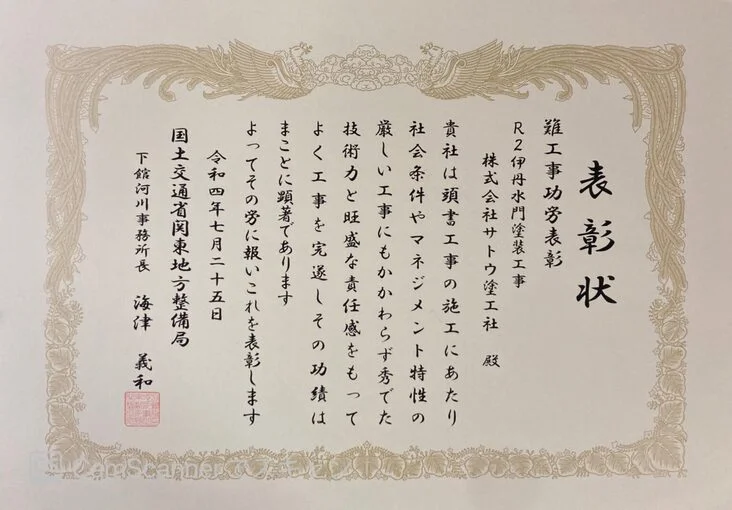 表彰状
難工事功労表彰
R2伊丹水門塗装工事
株式会社サトウ塗工社 殿
貴社は頭書工事の施工にあたり
社会条件やマネジメント特性の
厳しい工事にもかかわらず秀でた
技術力と旺盛な責任感をもって
よく工事を完遂しその功績は
まことに顕著であります
よってその労に報いこれを表彰します
令和四年七月二十五日
国土交通省関東地方整備局
下館河川事務所長 海津 義和
CamScanner